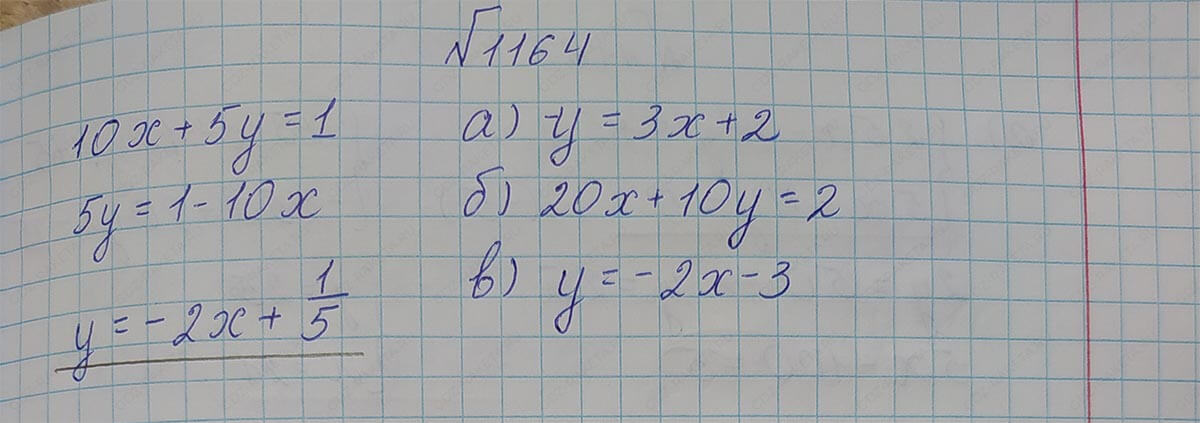 √1164
10x + 5y = 1
5y = 1 - 10x
y = -2x + 1/5
а) y = 3x + 2
б) 20x + 10y = 2
в) y = -2x - 3